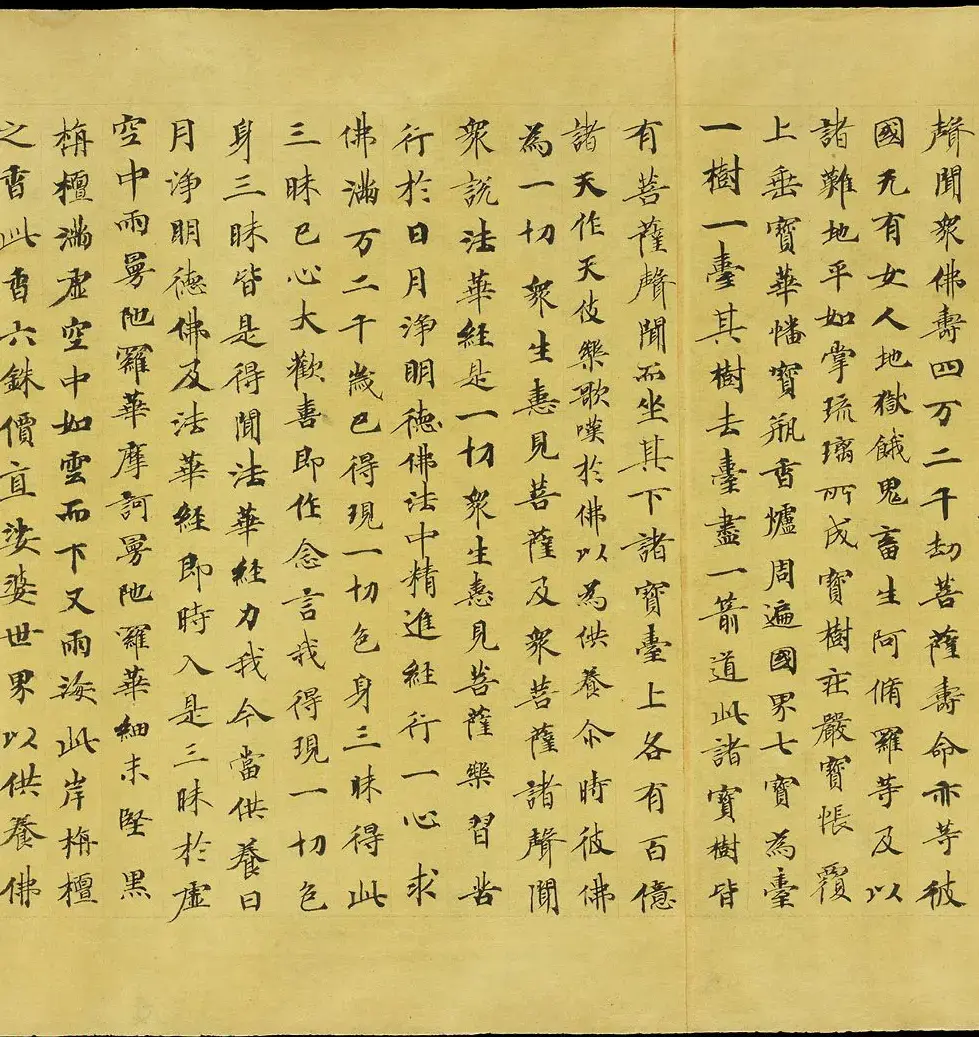 聲聞衆佛壽四万二千劫菩薩壽命亦等彼
國无有女人地獄餓鬼畜生阿脩羅等及以
諸難地平如掌琉璃所成寶樹莊嚴寶帳覆
上垂寶華幡寶瓶香爐周遍國界七寶為臺
一樹一臺其樹去臺盡一箭道此諸寶樹皆
有菩薩聲聞而坐其下諸寶臺上各有百億
諸天作天伎樂歌嘆於佛以為供養尒時彼佛
為一切衆生憙見菩薩及衆菩薩諸聲聞
衆說法華経是一切衆生憙見菩薩樂習苦
行於日月淨明德佛法中精進経行一心求
佛滿万二千歲已得現一切色身三昧得此
三昧已心大歡喜即作念言我得現一切色
身三昧皆是得聞法華経力我今當供養日
月淨明德佛及法華経即時入是三昧於虛
空中雨曼陁羅華摩訶曼陁羅華細末堅黑
栴檀滿虛空中如雲而下又雨海此岸栴檀
之香此香六銖價直娑婆世界以供養佛